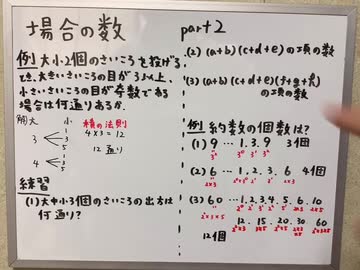 場合の数
例 大小2個のさいころを投げる
とき、大きいさいころの目が3以上、
小さいさいころの目が奇数である
場合は何通りあるか。
大 小
3 1 3 5
積の法則
4×3=12
12通り
4 1 3 5
練習
(1)大中小3個のさいころの出方は
何通り?
part2
(2) (a+b)(c+d+e)の項の数
(3) (a+b)(c+d+e)(f+g+h)
の項の数
例 約数の個数は?
(1) 9 … 1. 3. 9 3個
3² 3⁰ 3¹ 3²
(2) 6 … 1. 2. 3. 6 4個
2×3
(3) 60 … 1. 2. 3. 4. 5. 6. 10
2²×3×5
12. 15. 20. 30. 60
12個